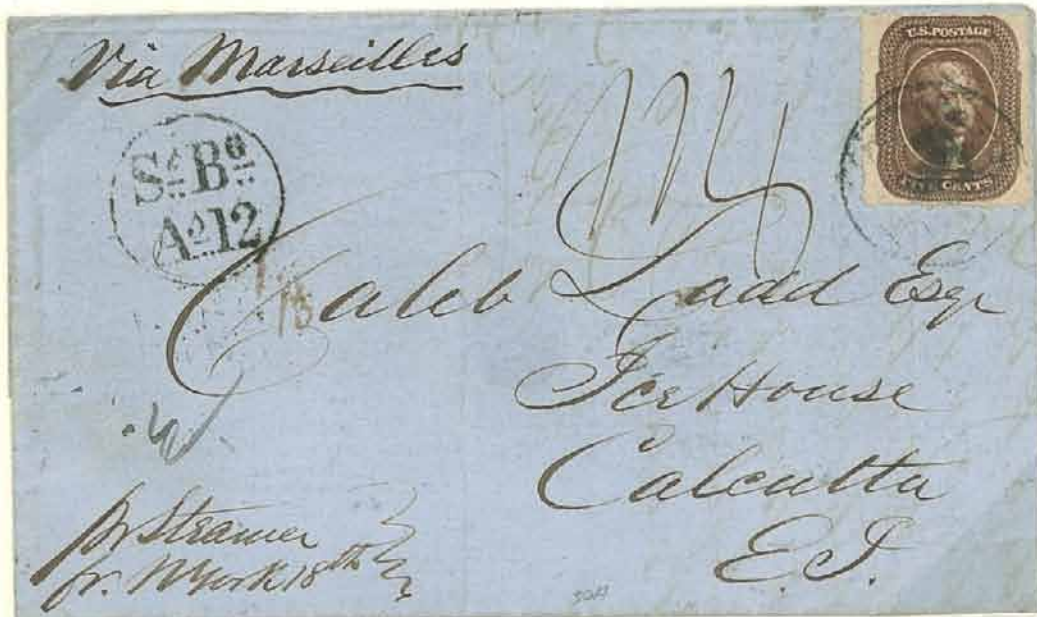 Via Marseilles
U.S. POSTAGE
FIVE CENTS
St. Bo.
Ao. 12
Caleb Ladd Esqr
Ice House
Calcutta
E.I.
pr Steamer
fr. NYork 18th